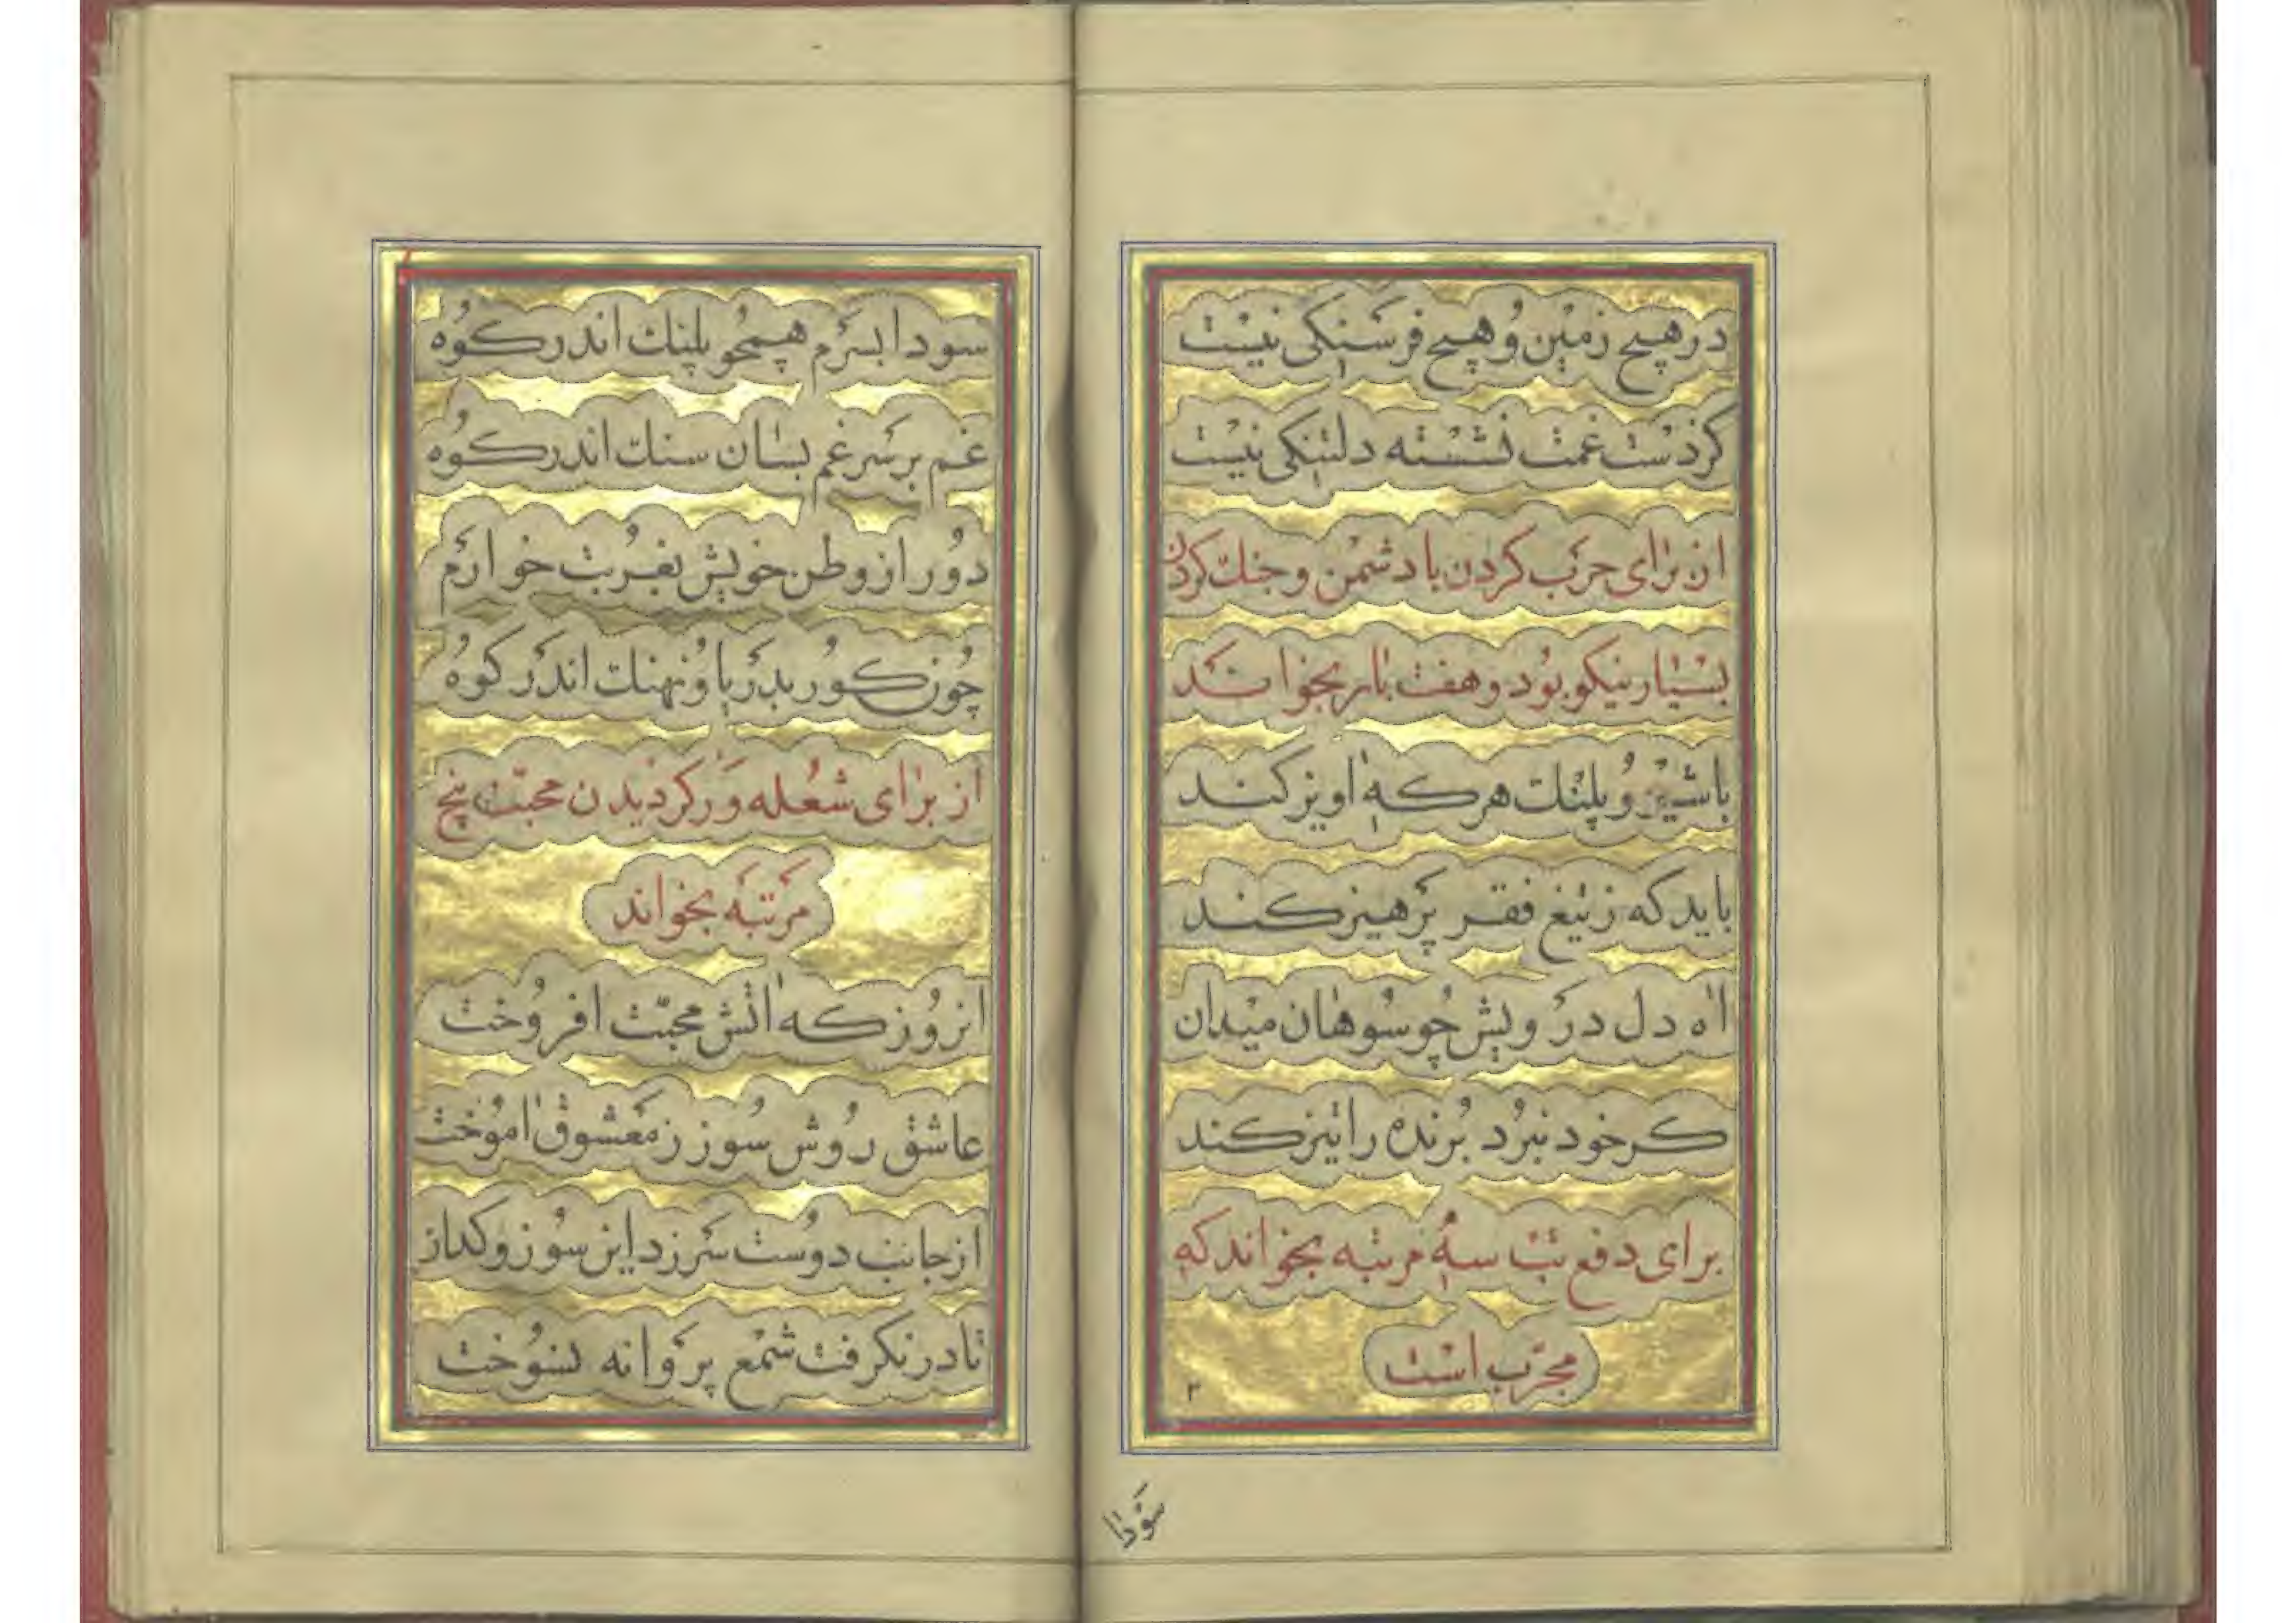 در هیچ زمین و هیچ فرسنکی نیست
کز دست غمت نشسته دلتنکی نیست
از برای حرب کردن با دشمن و جنك کردن
بسیار نیکو بود و هفت بار بخواند
با شیر و پلنك هر که اویز کند
باید که ز تیغ فقر پرهیز کند
اه دل درویش چو سوهان میدان
کر خود نبرد برنده را تیز کند
برای دفع تب سه مرتبه بخواند که
مجرّب است
۳
سودا
سودا بسرم همچو پلنك اندر کوه
غم بر سر غم بسان سنك اندر کوه
دور از وطن خویش بغربت خوارم
چون کور بدریا و نهنك اندر کوه
از برای شعله ور کردیدن محبّت پنج
مرتبه بخواند
انروز که اتش محبّت افروخت
عاشق روش سوز ز معشوق اموخت
از جانب دوست سرزد این سوز و کداز
تا در نکرفت شمع پروانه نسوخت